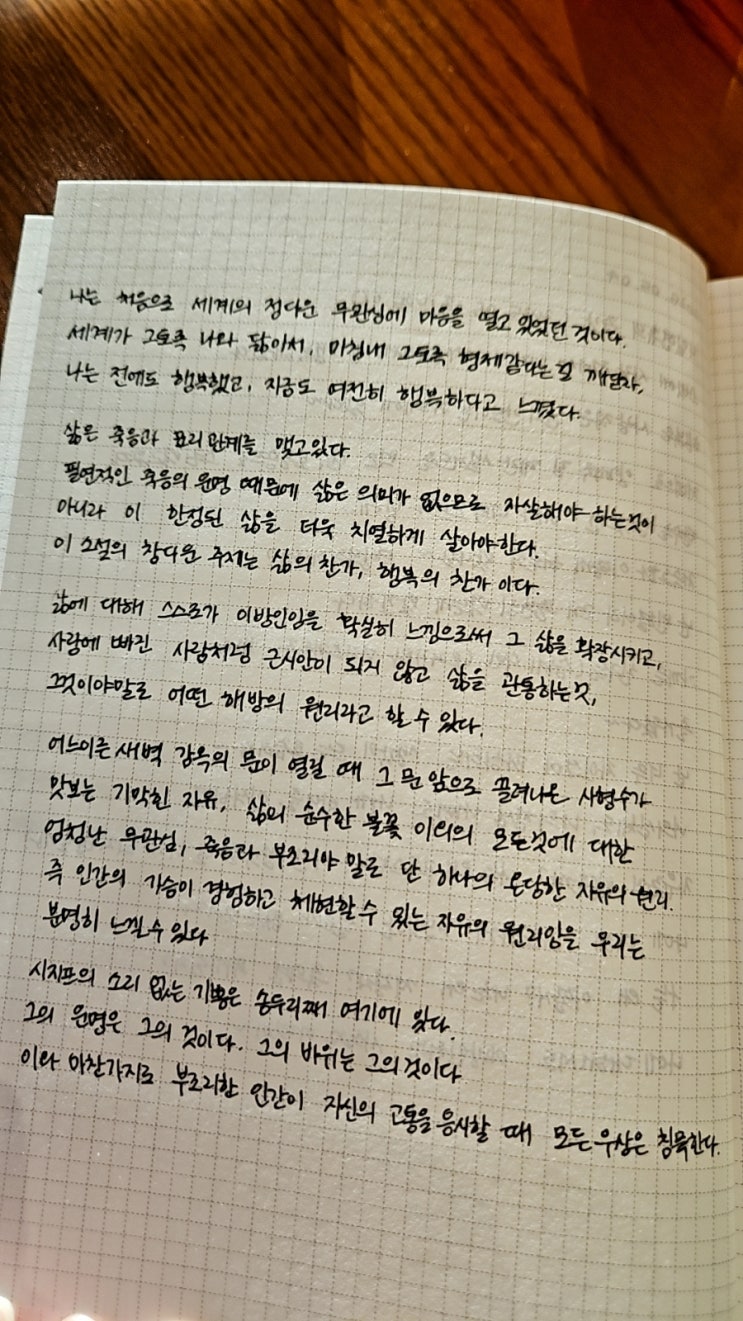 나는 처음으로 세계의 정다운 무관심에 마음을 열고 있었던 것이다.
세계가 그토록 나와 닮아서, 마침내 그토록 형제같다는걸 깨닫자,
나는 전에도 행복했고, 지금도 여전히 행복하다고 느꼈다.
삶은 죽음과 표리관계를 맺고있다.
필연적인 죽음의 운명 때문에 삶은 의미가 없으므로 자살해야 하는것이
아니라 이 한정된 삶을 더욱 치열하게 살아야한다.
이 소설의 참다운 주제는 삶의 찬가, 행복의 찬가 이다.
삶에 대해 스스로가 이방인임을 확실히 느낌으로써 그 삶을 확장시키고,
사랑에 빠진 사람처럼 근시안이 되지 않고 삶을 관통하는것,
그것이야말로 어떤 해방의 원리라고 할 수 있다.
어느이른새벽 감옥의 문이 열릴 때 그 문 앞으로 끌려나온 사형수가
맛보는 기막힌 자유, 삶의 순수한 불꽃 이외의 모든것에 대한
엄청난 무관심, 죽음과 부조리야 말로 단 하나의 온당한 자유의 원리.
즉 인간의 가슴이 경험하고 체현할 수 있는 자유의 원리임을 우리는
분명히 느낄수있다
시지프의 소리 없는 기쁨은 송두리째 여기에 있다.
그의 운명은 그의 것이다. 그의 바위는 그의것이다
이와 마찬가지로 부조리한 인간이 자신의 고통을 응시할 때 모든 우상은 침묵한다.